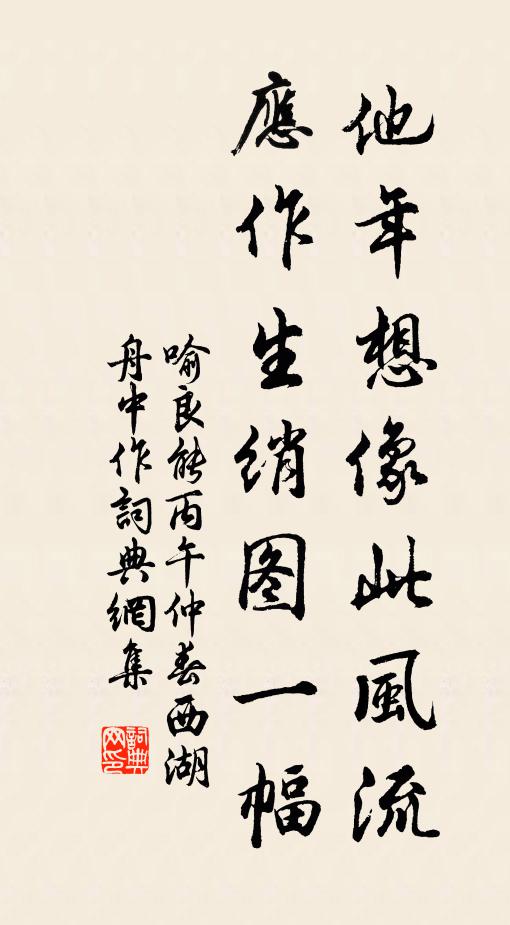 他年想像此風流
應作生綃图一幅
喻良能丙午仲春西湖
舟中作詞典網集
詞典网印